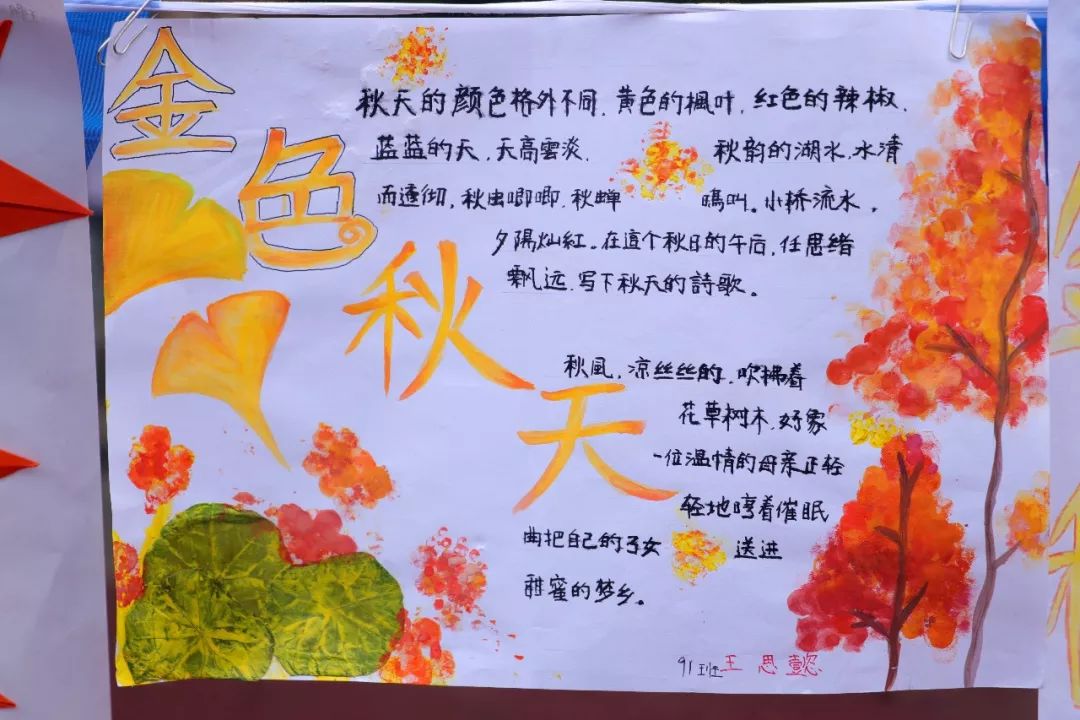 金色秋天
秋天的颜色格外不同.黄色的楓叶.红色的辣椒.
蓝蓝的天.天高雲淡.秋韵的湖水.水清
而透彻.秋虫唧唧.秋蝉鳴叫.小桥流水.
夕陽灿紅.在這个秋日的午后,任思绪
飘远.写下秋天的詩歌。
秋風,凉丝丝的.吹拂着
花草树木.好象
一位温情的母亲正轻
轻地哼着催眠
曲把自己的子女送进
甜蜜的梦乡。
91班王思懿